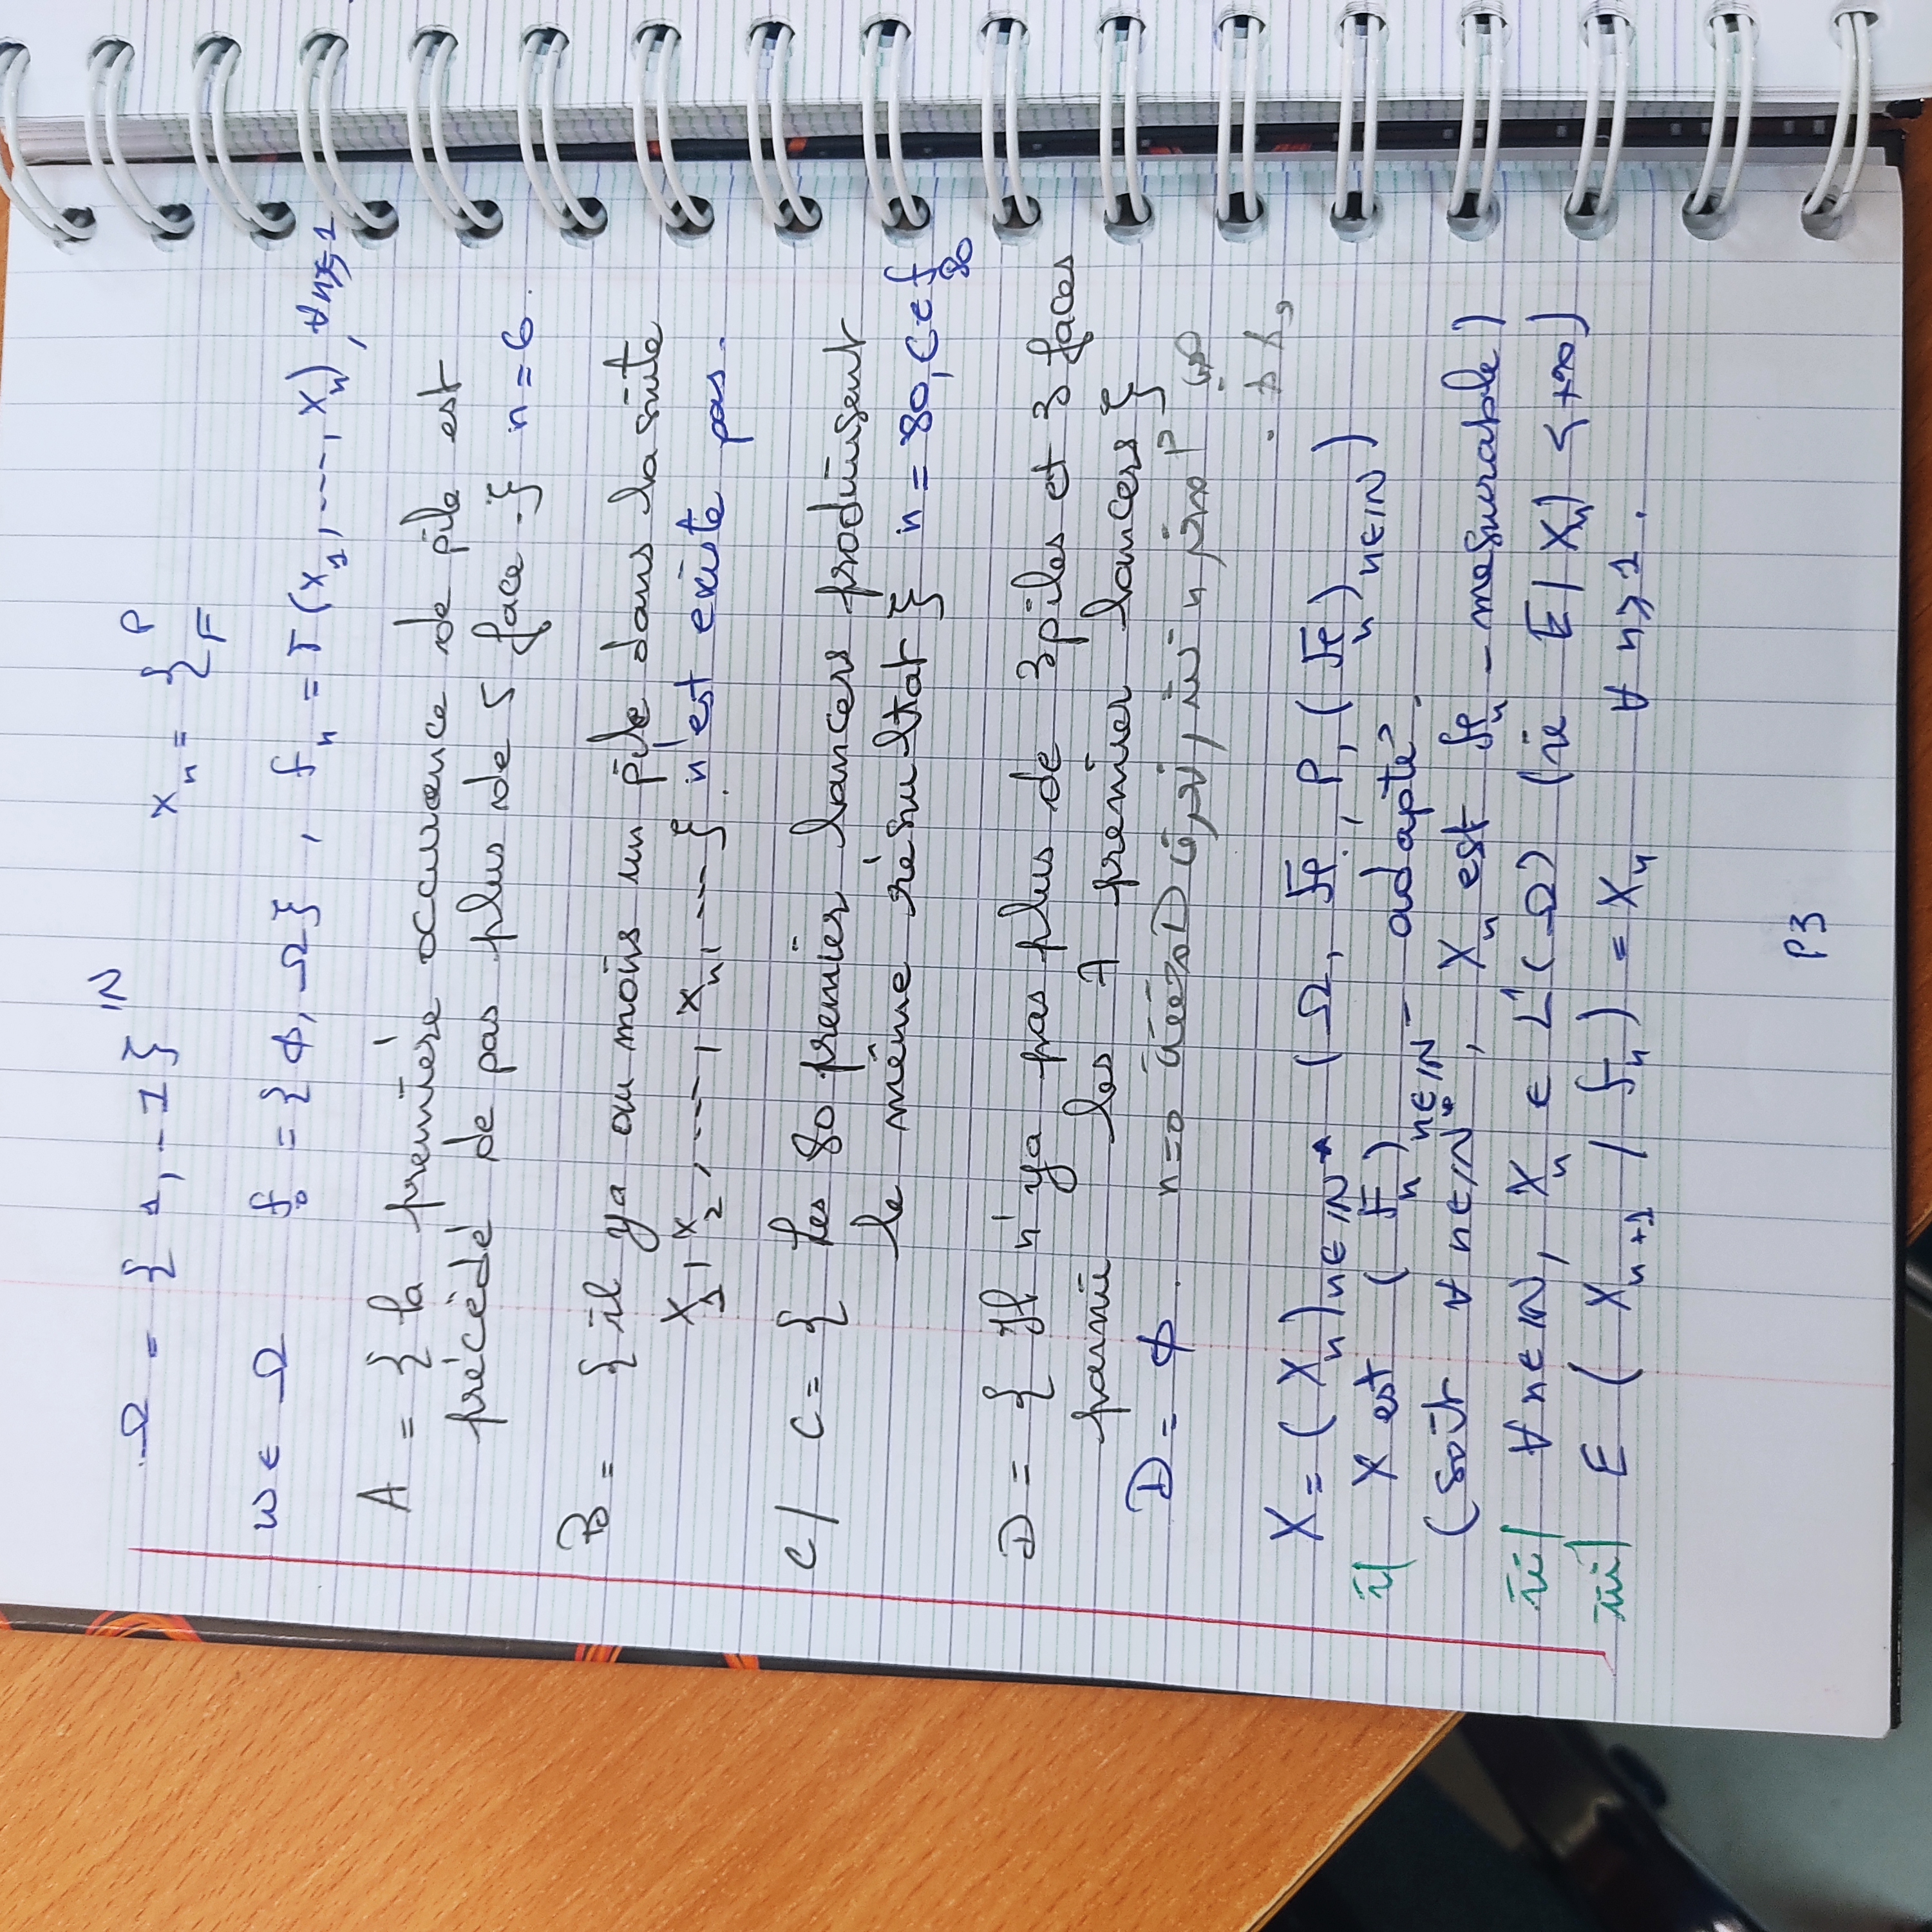 Ω = {1, -1}^ℕ    X_n = { P F
ω ∈ Ω    f_0 = {ϕ, Ω}, f_n = Γ(X_1, ---, X_n), ∀n≥1
A = { la première occurence de pile est
précédé de pas plus de 5 face .} n = 6.
B = { il ya au moins un pile dans la suite
X_1, X_2, ---, X_n, ---}. n'est existe pas.
C/ C = { Les 80 premier lancers produisent
le même résultat } n = 80, C ∈ f_80
D = { Il n'ya pas plus de 3 piles et 3 faces
parmi les 7 premier lancers }
D = ϕ. n=0
X = (X_n)_{n∈ℕ*} (Ω, F, P, (F_n)_{n∈ℕ})
i/ X est (F_n)_{n∈ℕ} - adapté.
(soit ∀ n∈ℕ*, X_n est F_n - mesurable)
ii/ ∀n∈ℕ, X_n ∈ L¹(Ω) (ie E|X_n| < +∞)
iii/ E (X_{n+1} / f_n) = X_n    ∀ n ≥ 1.
P3